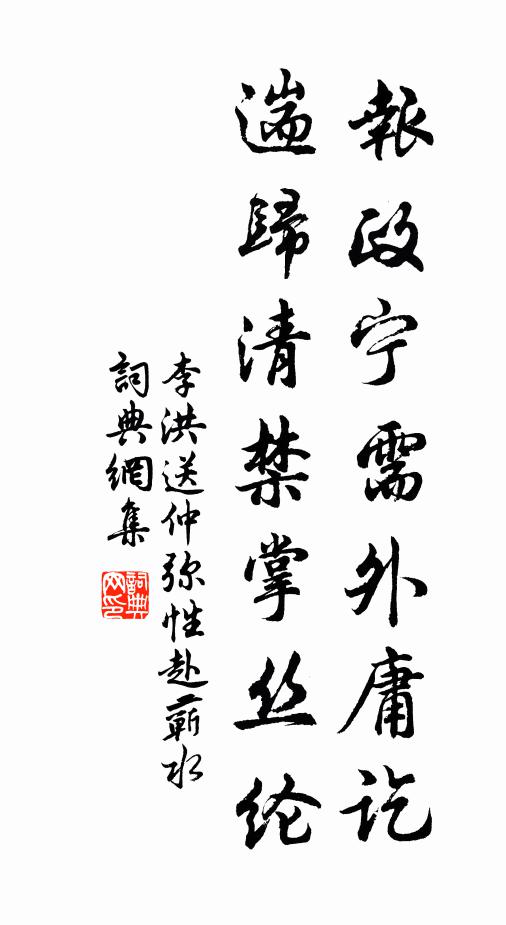 報政宁需外庸訖
遄歸清禁掌丝纶
李洪送仲弥性赴蘄水
詞典網集
詞典
网印